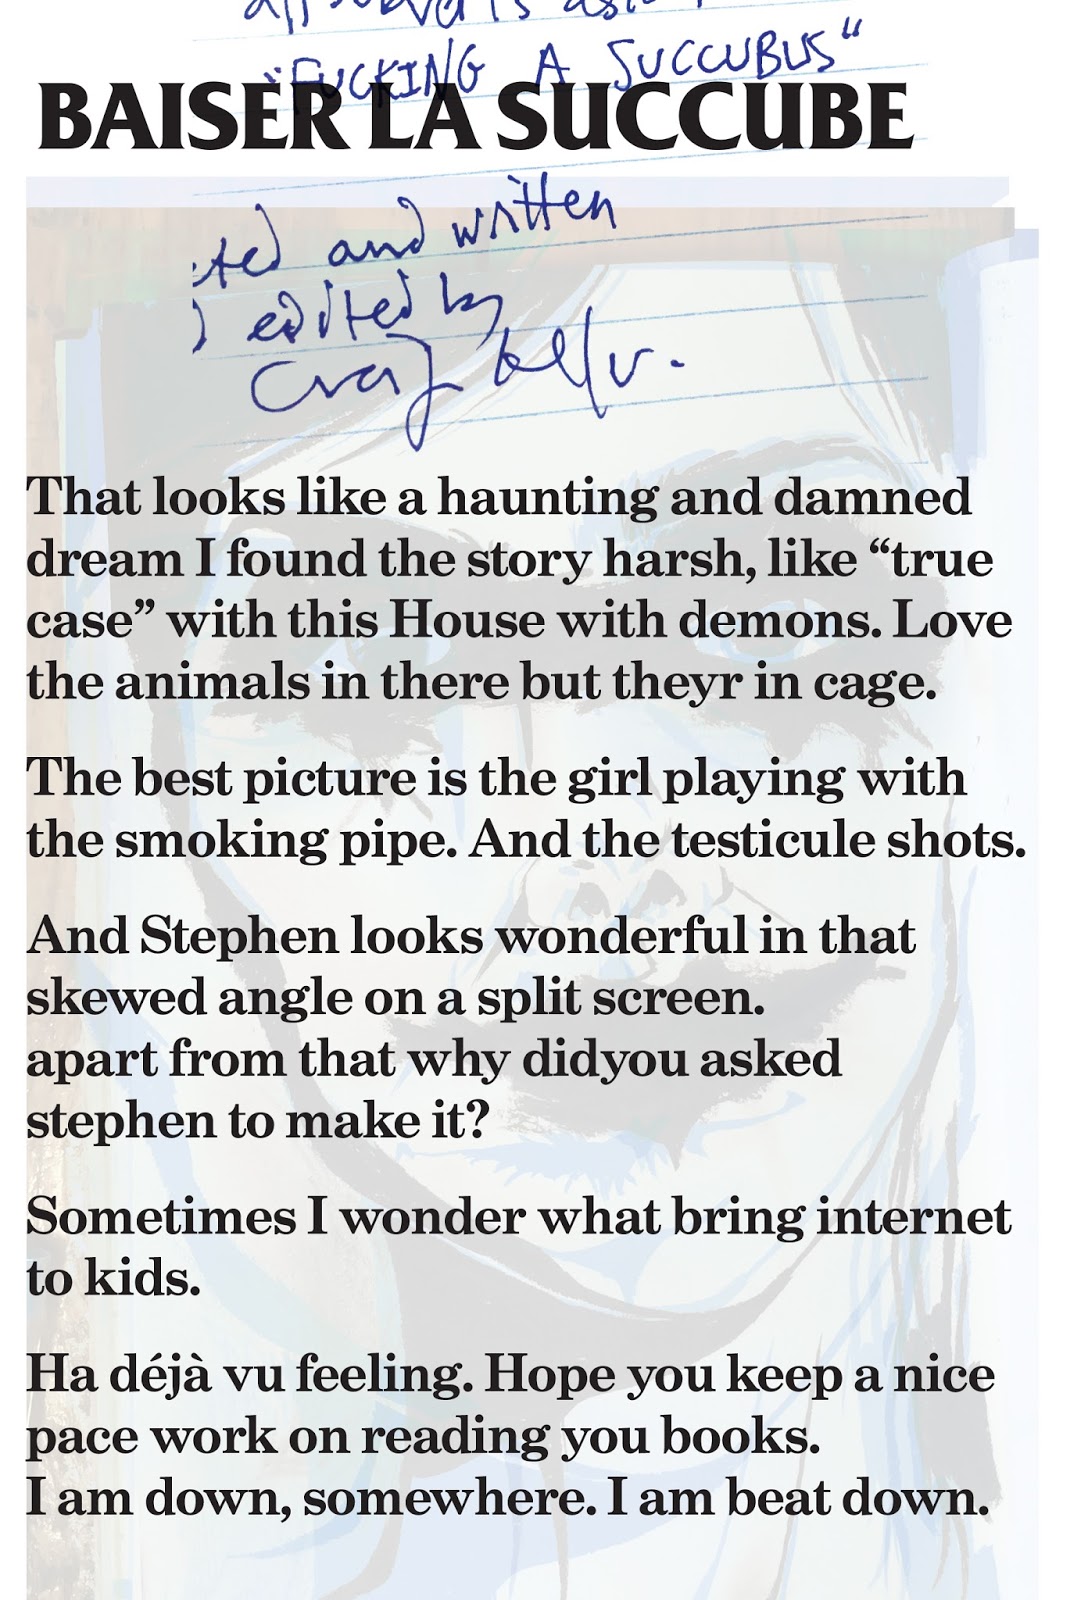 "FUCKING A SUCCUBUS"
BAISER LA SUCCUBE
and written
edited by
That looks like a haunting and damned
dream I found the story harsh, like “true
case” with this House with demons. Love
the animals in there but theyr in cage.
The best picture is the girl playing with
the smoking pipe. And the testicule shots.
And Stephen looks wonderful in that
skewed angle on a split screen.
apart from that why didyou asked
stephen to make it?
Sometimes I wonder what bring internet
to kids.
Ha déjà vu feeling. Hope you keep a nice
pace work on reading you books.
I am down, somewhere. I am beat down.